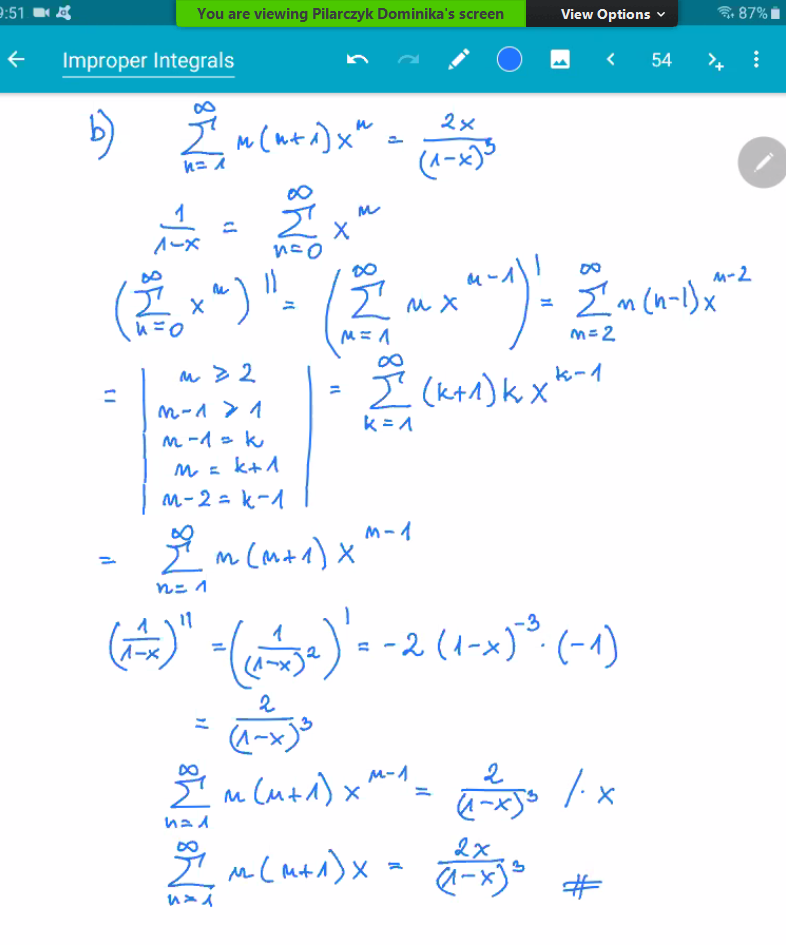 9:51 You are viewing Pilarczyk Dominika's screen View Options 87%
Improper Integrals 54
b) ∑_{n=1}^{∞} n(n+1)x^n = 2x/(1-x)^3
1/(1-x) = ∑_{n=0}^{∞} x^n
(∑_{n=0}^{∞} x^n)'' = (∑_{n=1}^{∞} n x^{n-1})' = ∑_{n=2}^{∞} n(n-1)x^{n-2}
= | n ≥ 2
n-1 ≥ 1
n-1 = k
n = k+1
n-2 = k-1 | = ∑_{k=1}^{∞} (k+1)k x^{k-1}
= ∑_{n=1}^{∞} n(n+1)x^{n-1}
(1/(1-x))'' = (1/(1-x)^2)' = -2(1-x)^{-3}·(-1)
= 2/(1-x)^3
∑_{n=1}^{∞} n(n+1)x^{n-1} = 2/(1-x)^3 /·x
∑_{n=1}^{∞} n(n+1)x = 2x/(1-x)^3 #